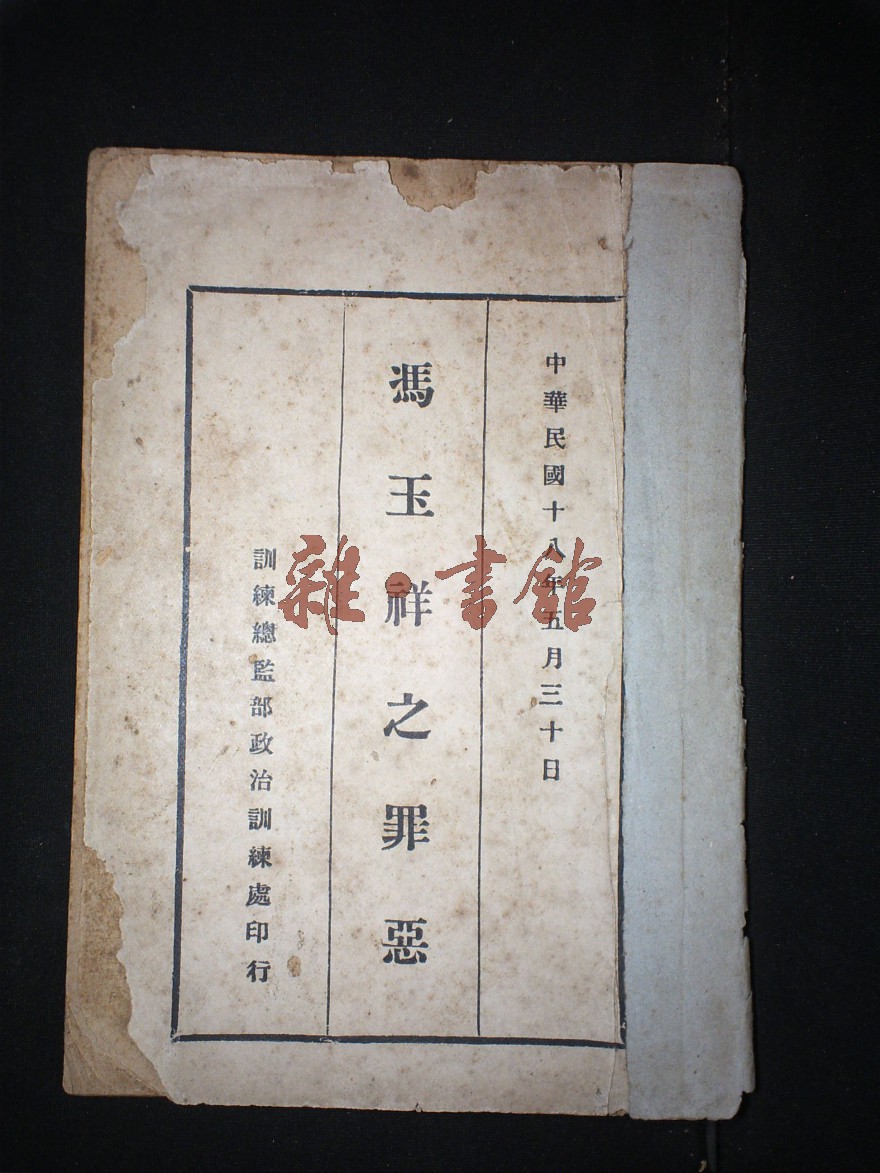 中華民國十八年五月三十日
馮玉祥之罪惡
訓練總監部政治訓練處印行
雜·書館